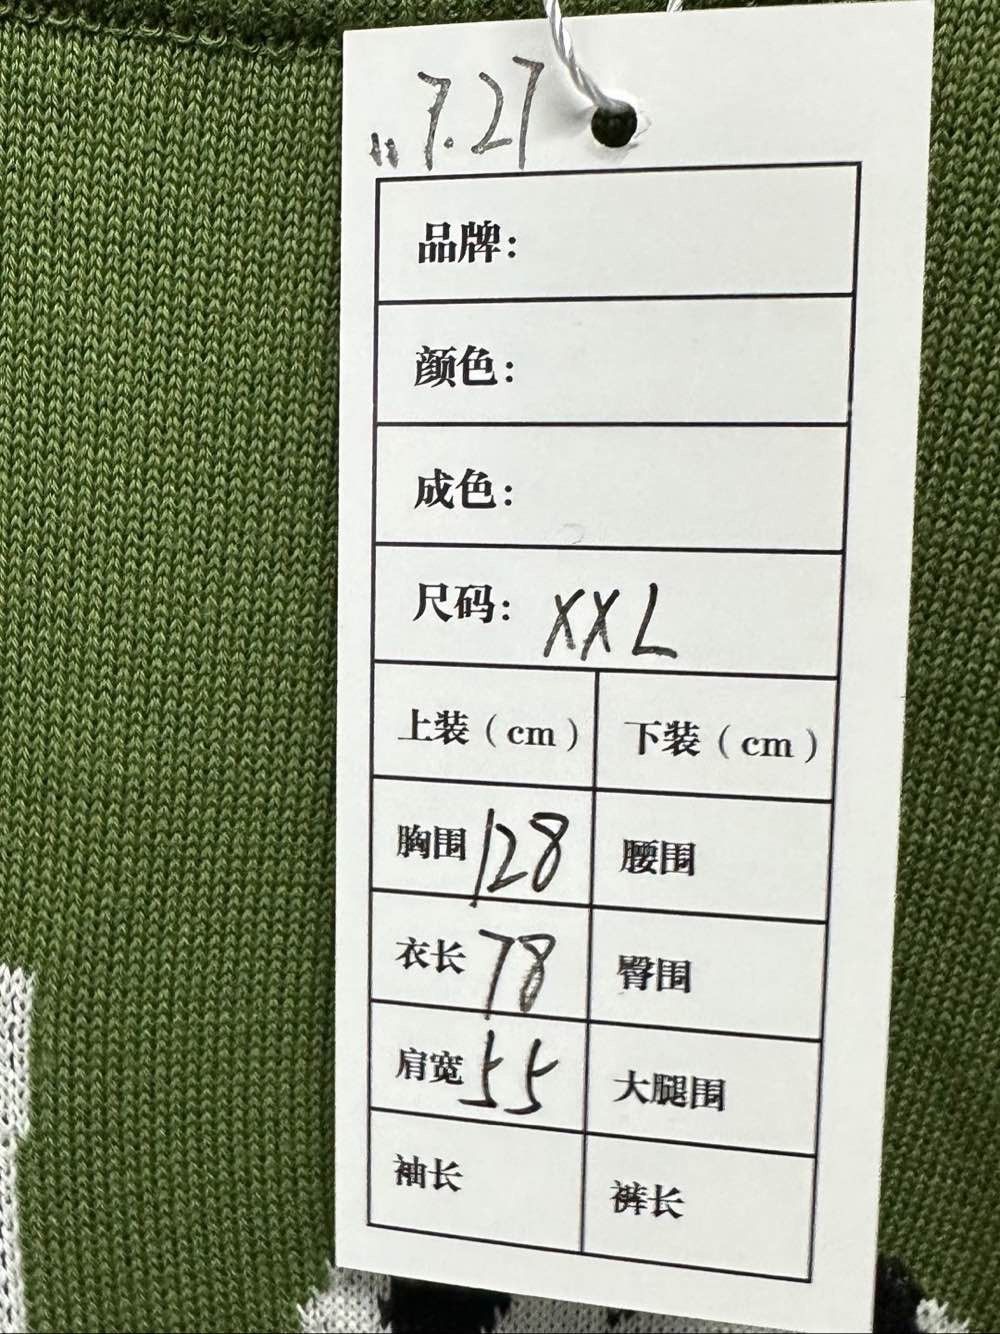 "7.27
品牌：
颜色：
成色：
尺码：XXL
上装（cm） 下装（cm）
胸围 128 腰围
衣长 78 臀围
肩宽 55 大腿围
袖长 裤长